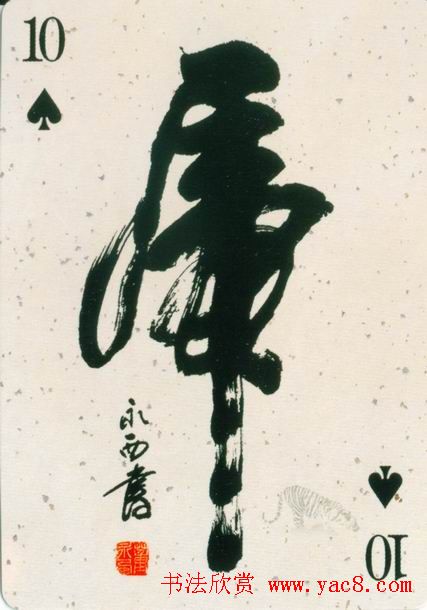 10
虎
永西書
书法欣赏 www.yac8.com
10